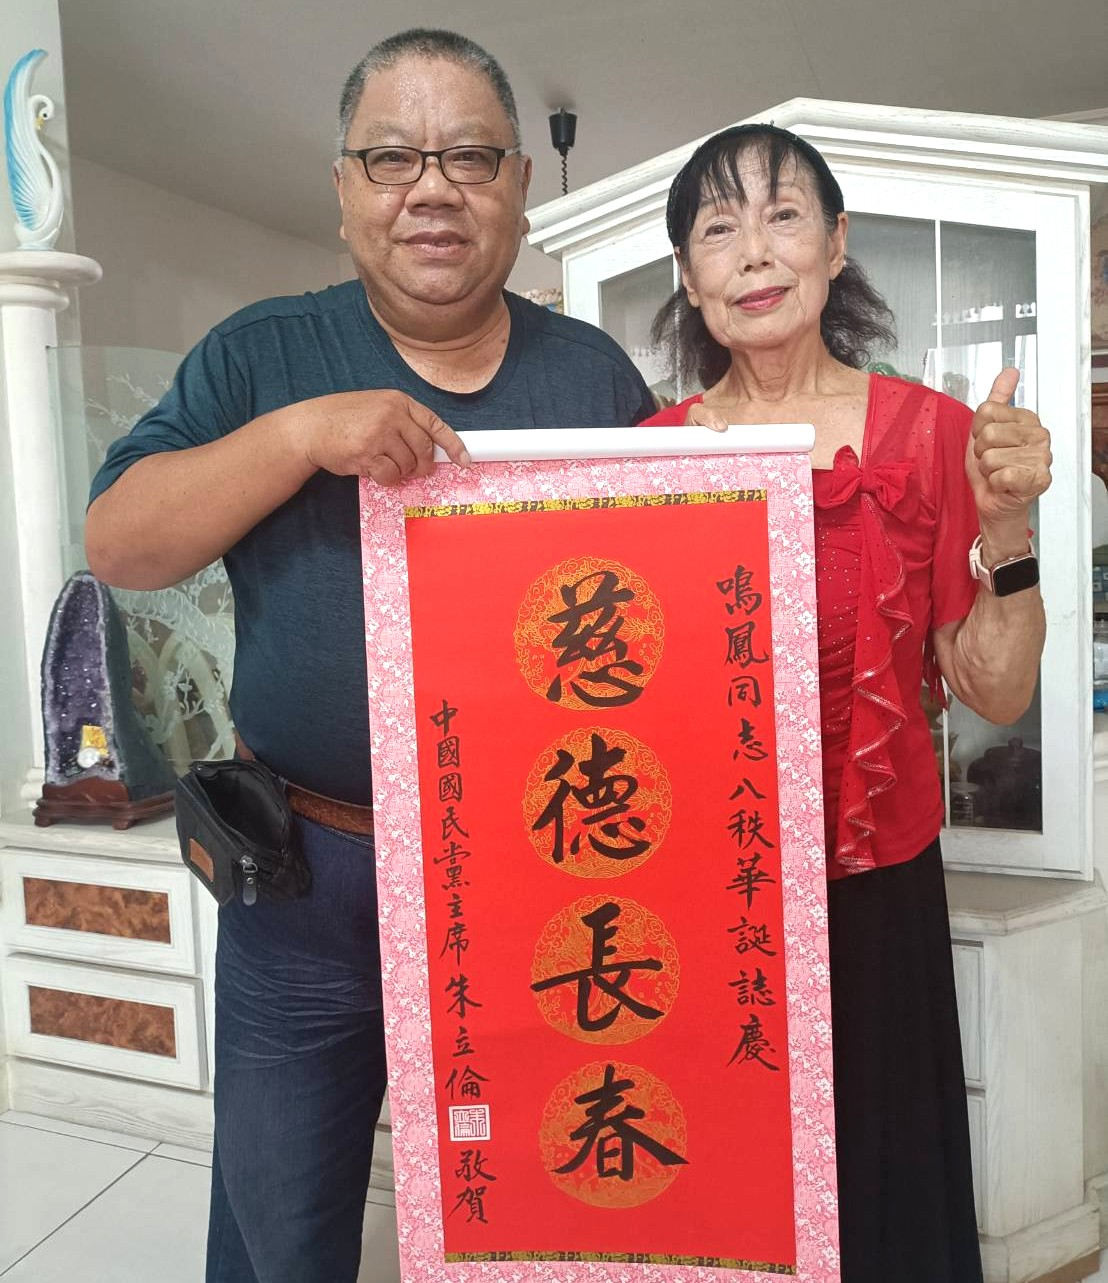 鳴鳳同志八秩華誕誌慶
慈德長春
中國國民黨主席朱立倫敬賀